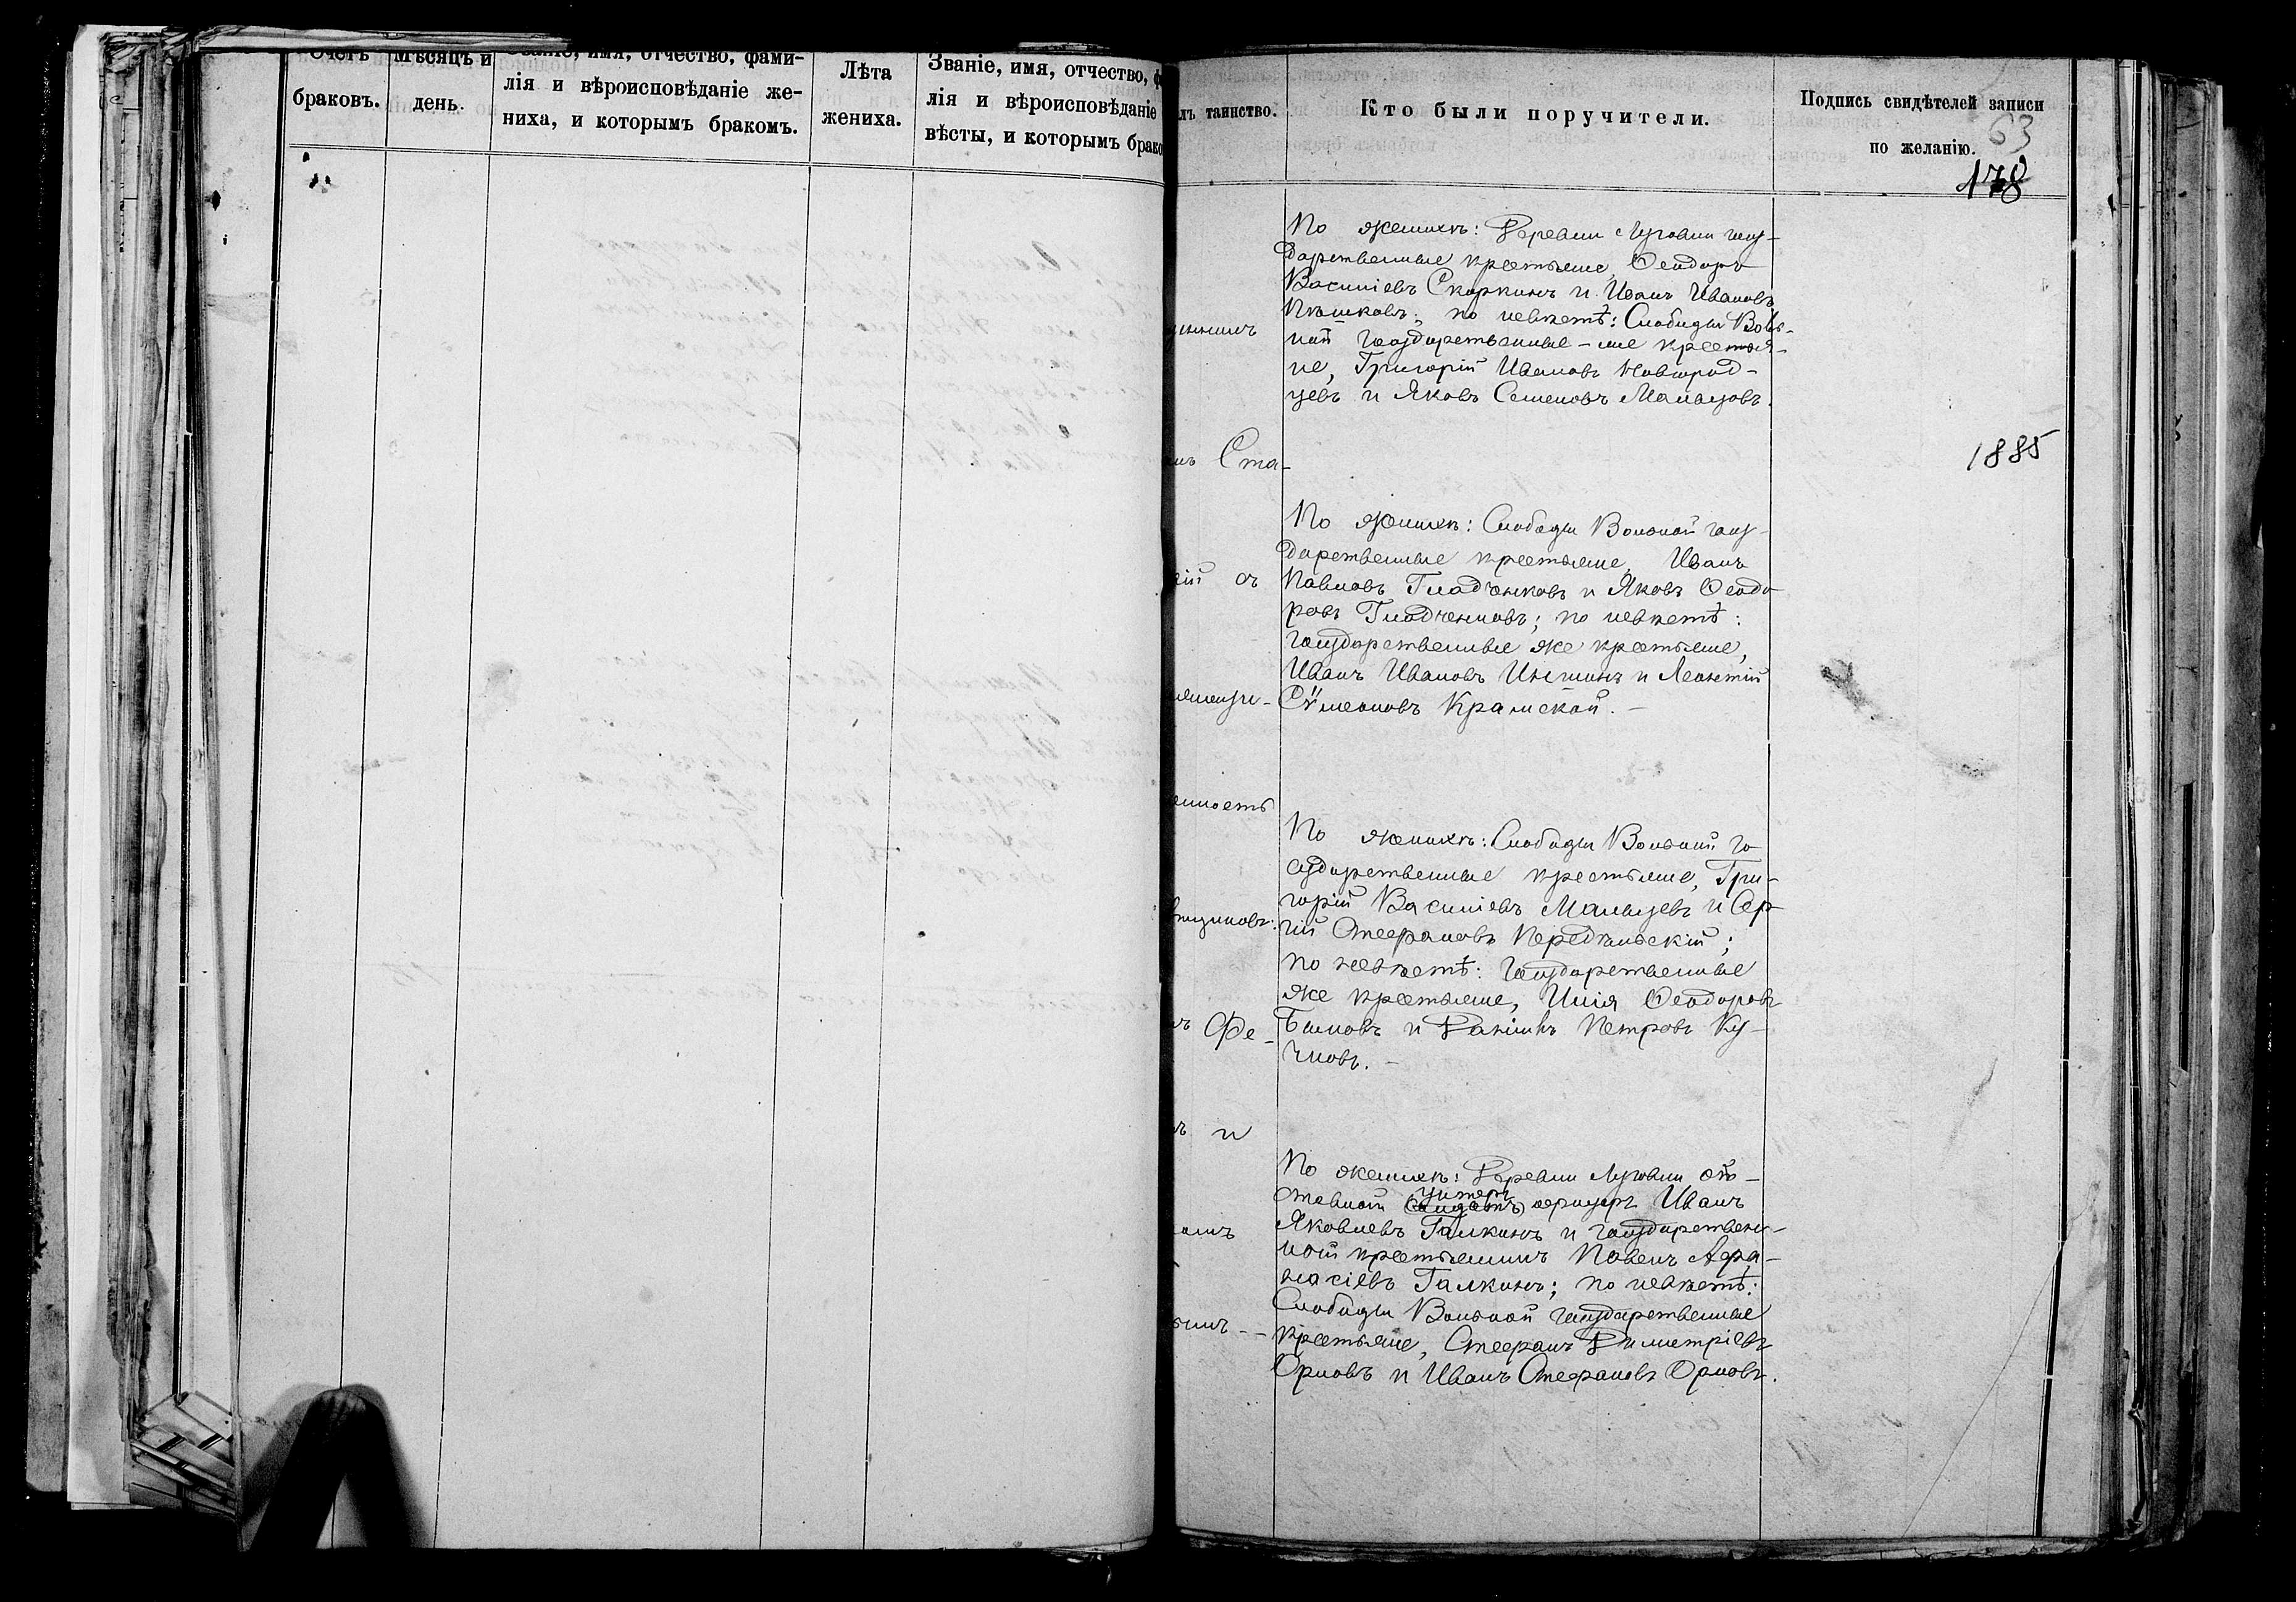 Счетъ
браковъ.
Мѣсяцъ и
день.
Званіе, имя, отчество, фами-
лія и вѣроисповѣданіе же-
ниха, и которымъ бракомъ.
Лѣта
жениха.
Званіе, имя, отчество, ф
лія и вѣроисповѣданіе
вѣсты, и которымъ брако
лъ таинство.
Кто были поручители.
Подпись свидѣтелей записи
по желанію.
63
178
По женихѣ: Деревни Луговки госу-
дарственные крестьяне, Ѳеодоръ
Василіевъ Скоркинъ и Иванъ Ивановъ
Пѣшковъ; по невѣстѣ: Слободы Воль-
ной государственные-же крестья-
не, Григорій Ивановъ Новгород-
цевъ и Яковъ Семеновъ Мальцовъ.
Ста-
1885
По женихѣ: Слободы Вольной госу-
дарственные крестьяне, Иванъ
Павловъ Гладченковъ и Яковъ Ѳеодо-
ровъ Гладченковъ; по невѣстѣ:
государственные же крестьяне,
Иванъ Ивановъ и Леонтій
Сѵмеоновъ Крамской.
По женихѣ: Слободы Вольной го-
сударственные крестьяне, Гри-
горій Василіевъ Мальцевъ и Сер-
гій Стефановъ Передѣльскій;
по невѣстѣ: государственные
же крестьяне, Илія Ѳеодоровъ
Быковъ и Даніилъ Петровъ Ку-
чковъ.
Фе-
и
По женихѣ: Деревни Луговки от-
ставной унтеръ офицеръ Иванъ
Яковлевъ Галкинъ и государствен-
ной крестьянинъ Павелъ Афа-
насіевъ Галкинъ; по невѣстѣ:
Слободы Вольной государственные
крестьяне, Стефанъ Димитріевъ
Орловъ и Иванъ Стефановъ Орловъ.